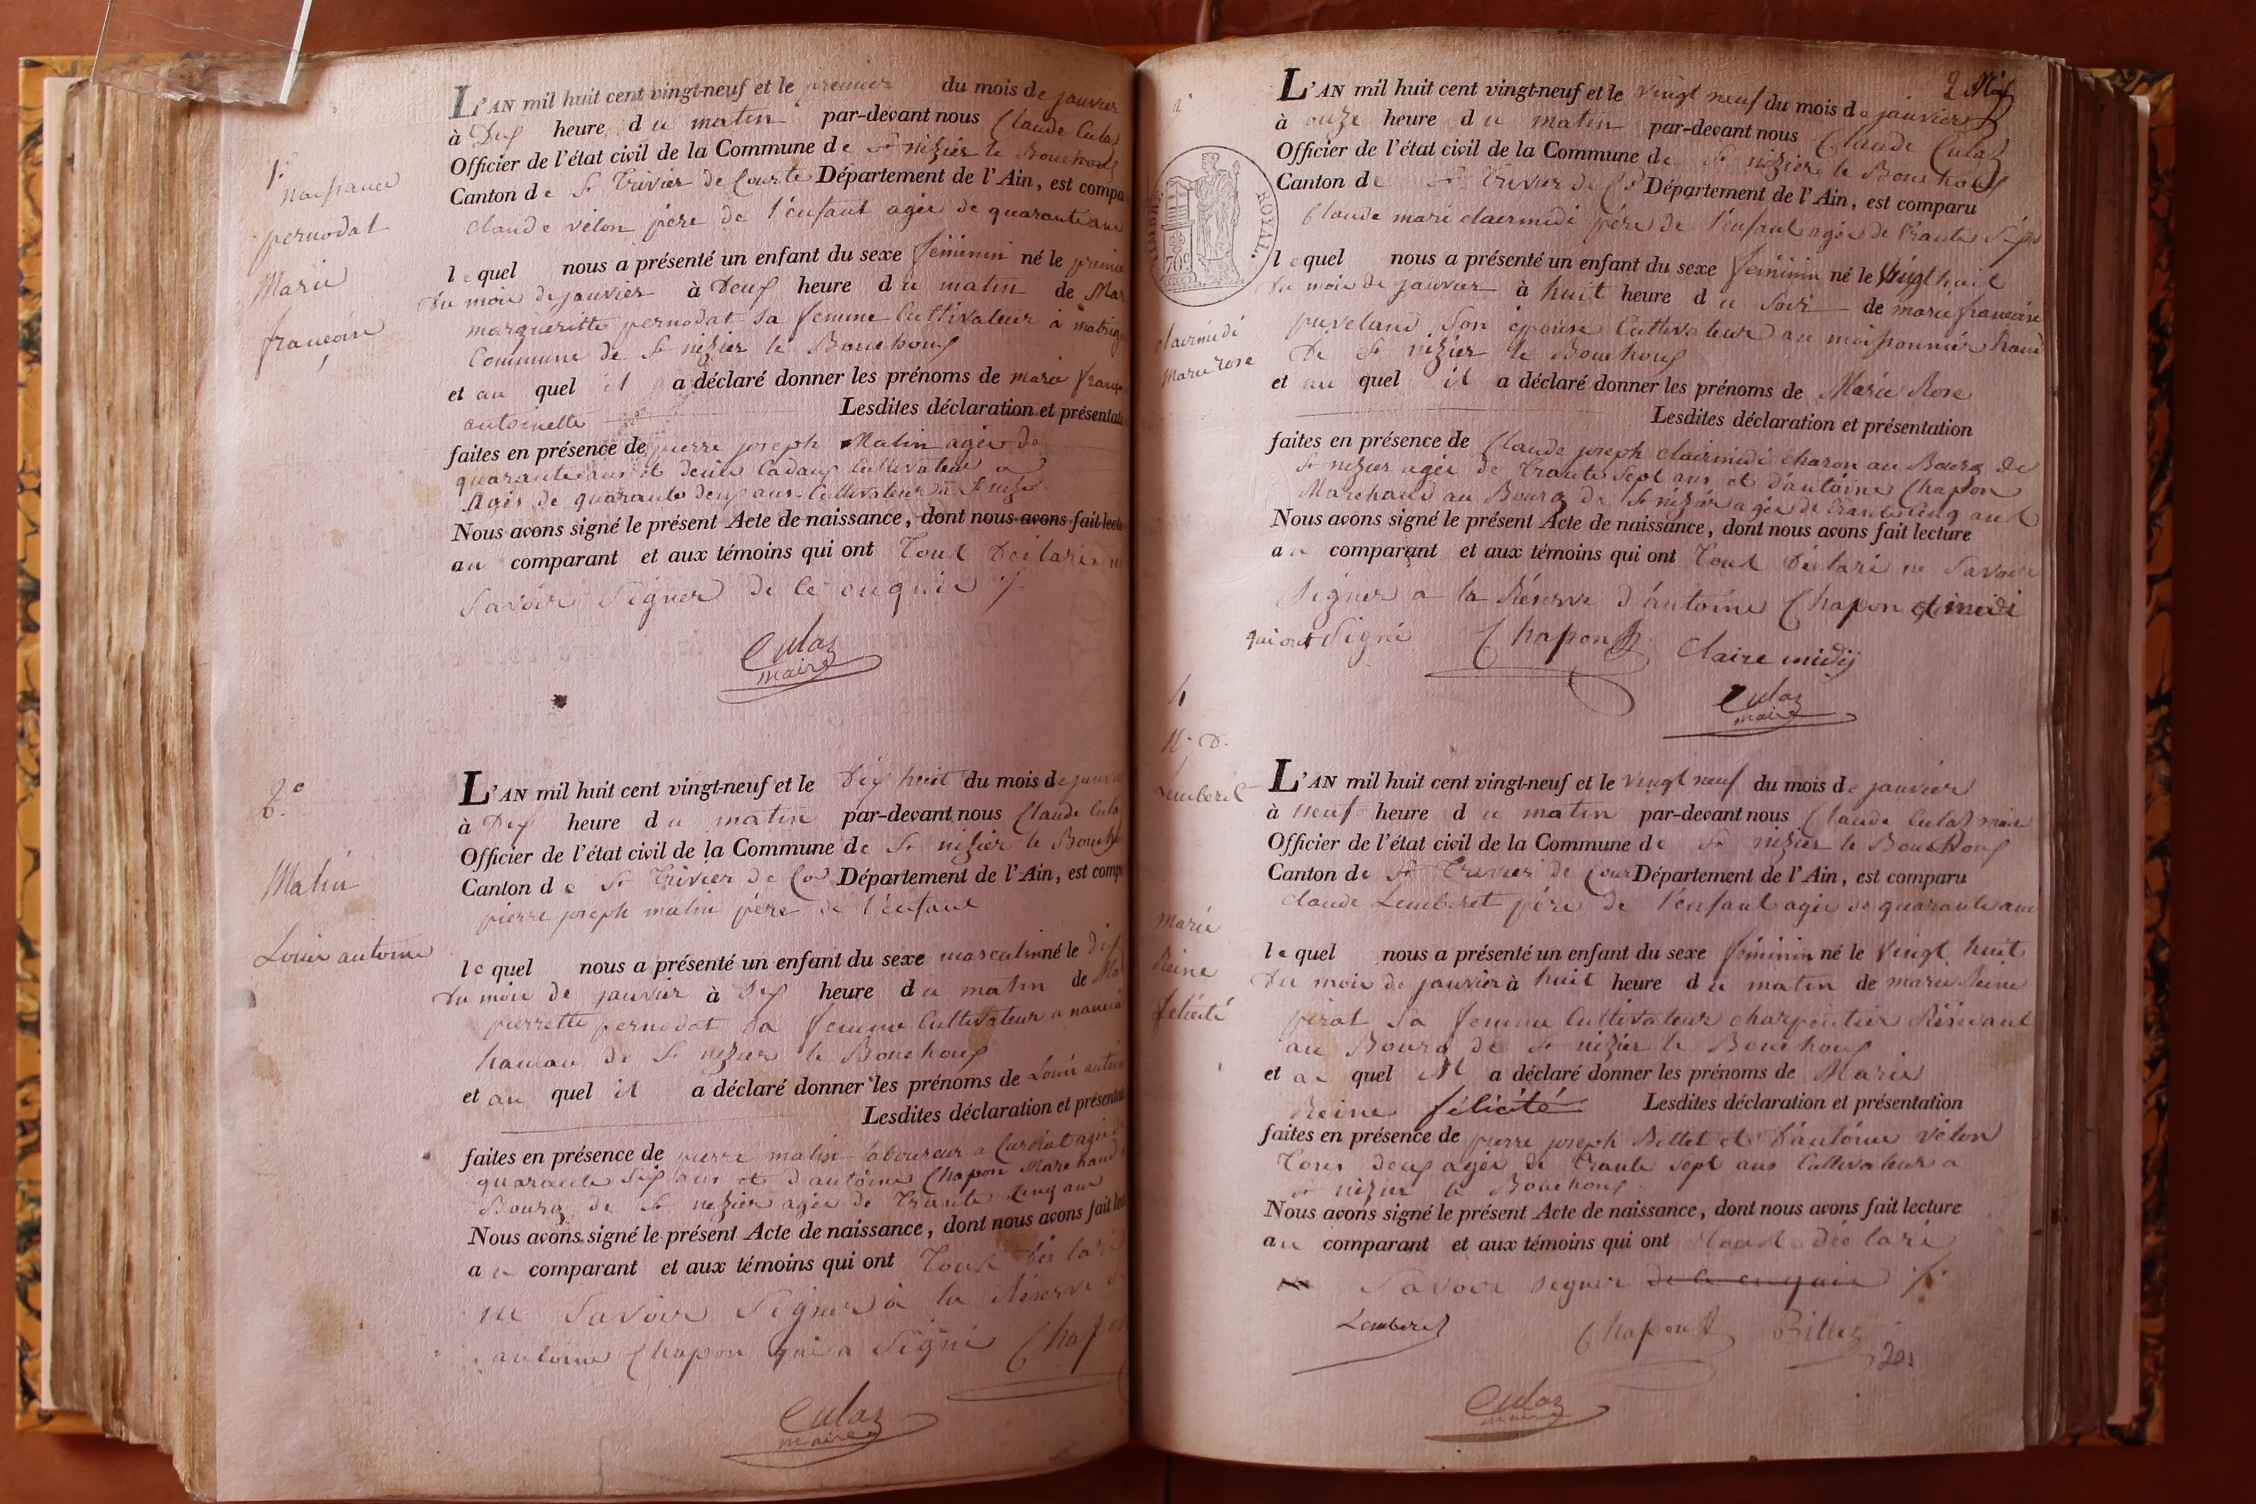 1.
naissance
pernodat
Marie
francoise
L'AN mil huit cent vingt-neuf et le premier du mois de janvier
à Dix heure du matin par-devant nous Claude Culaz
Officier de l'état civil de la Commune de St nizier le Bouchoux
Canton de St Trivier de Courte Département de l'Ain, est compa
Claude vélon père de l'enfant agée de quarante ans
lequel nous a présenté un enfant du sexe féminin né le premier
du mois de janvier à Deux heure du matin de Mar
margueritte pernodat sa femme Cultivateur à
Commune de St nizier le Bouchoux
et au quel il a déclaré donner les prénoms de marie franç
antoinette
Lesdites déclaration et présentat
faites en présence de pierre joseph Matin agée de
quarante ans et denis Cadaux Cultivateur a
Agés de quarante deux ans Cultivateur à St nizi
Nous avons signé le présent Acte de naissance, dont nous avons fait lectu
au comparant et aux témoins qui ont tout Déclaré ne
Savoir Signer de ce enquis
Culaz
maire
2.e
Malin
Louis antoine
L'AN mil huit cent vingt-neuf et le Dix huit du mois de janvi
à Dix heure du matin par-devant nous Claude Cula
Officier de l'état civil de la Commune de St nizier le Bouch
Canton de St Trivier de Cou Département de l'Ain, est comp
pierre joseph malin père de l'enfant
lequel nous a présenté un enfant du sexe masculin né le dix
du mois de janvier à Dix heure du matin de Mar
pierrette pernodat sa femme Cultivateur a
hameau de St nizier le Bouchoux
et au quel il a déclaré donner les prénoms de Louis antoin
Lesdites déclaration et présentat
faites en présence de pierre malin laboureur a Curciat agée de
quarante Six ans et d'antoine Chapon Marchand
Bourg de St nizier agée de Trante Cinq ans
Nous avons signé le présent Acte de naissance, dont nous avons fait lec
au comparant et aux témoins qui ont Tout Déclaré
ne Savoir Signer à la Réserve d
antoine Chapon qui a Signé Chapon
Culaz
maire
2
TIMBRE ROYAL
clairmidi
Marie rose
L'AN mil huit cent vingt-neuf et le vingt neuf du mois de janvier
à onze heure du matin par-devant nous Claude Culaz
Officier de l'état civil de la Commune de St nizier le Bouchoux
Canton de St Trivier de Cs Département de l'Ain, est comparu
Claude marie clairmidi père de l'enfant agée de trante Six
lequel nous a présenté un enfant du sexe féminin né le Vingt huit
du mois de janvier à huit heure du Soir de marie francoise
puveland Son épouse Cultivateur au moissonnier ham
De St nizier le Bouchoux
et au quel il a déclaré donner les prénoms de Marie Rose
Lesdites déclaration et présentation
faites en présence de Claude joseph clairmidi charon au Bourg de
St nizier agée de Trante Sept ans et d'antoine Chapon
Marchand au Bourg de St nizier agée de trante cinq ans
Nous avons signé le présent Acte de naissance, dont nous avons fait lecture
au comparant et aux témoins qui ont Tout Déclaré ne Savoir
Signer a la Réserve d'antoine Chapon et
qui ont Signé Chapon Claire midij
Culaz
maire
4
N. D.
Lemberet
Marie
Reine
félicité
L'AN mil huit cent vingt-neuf et le vingt neuf du mois de janvier
à neuf heure du matin par-devant nous Claude Culaz maire
Officier de l'état civil de la Commune de St nizier le Bouchoux
Canton de St Trivier de Cour Département de l'Ain, est comparu
Claude Lemberet père de l'enfant agée de quarante ans
lequel nous a présenté un enfant du sexe féminin né le Vingt huit
Du mois de janvier à huit heure du matin de marie Reine
pirat Sa femme Cultivateur charpentier Résidant
au Bourg de St nizier le Bouchoux
et au quel il a déclaré donner les prénoms de Marie
Reine félicité Lesdites déclaration et présentation
faites en présence de pierre joseph Billet et D'antoine vélon
Tous deux agée de Trante Sept ans Cultivateur a
St nizier le Bouchoux
Nous avons signé le présent Acte de naissance, dont nous avons fait lecture
au comparant et aux témoins qui ont Tout déclaré
ne Savoir signer de ce enquis
Lemberet Chapon Billet
Culaz
maire